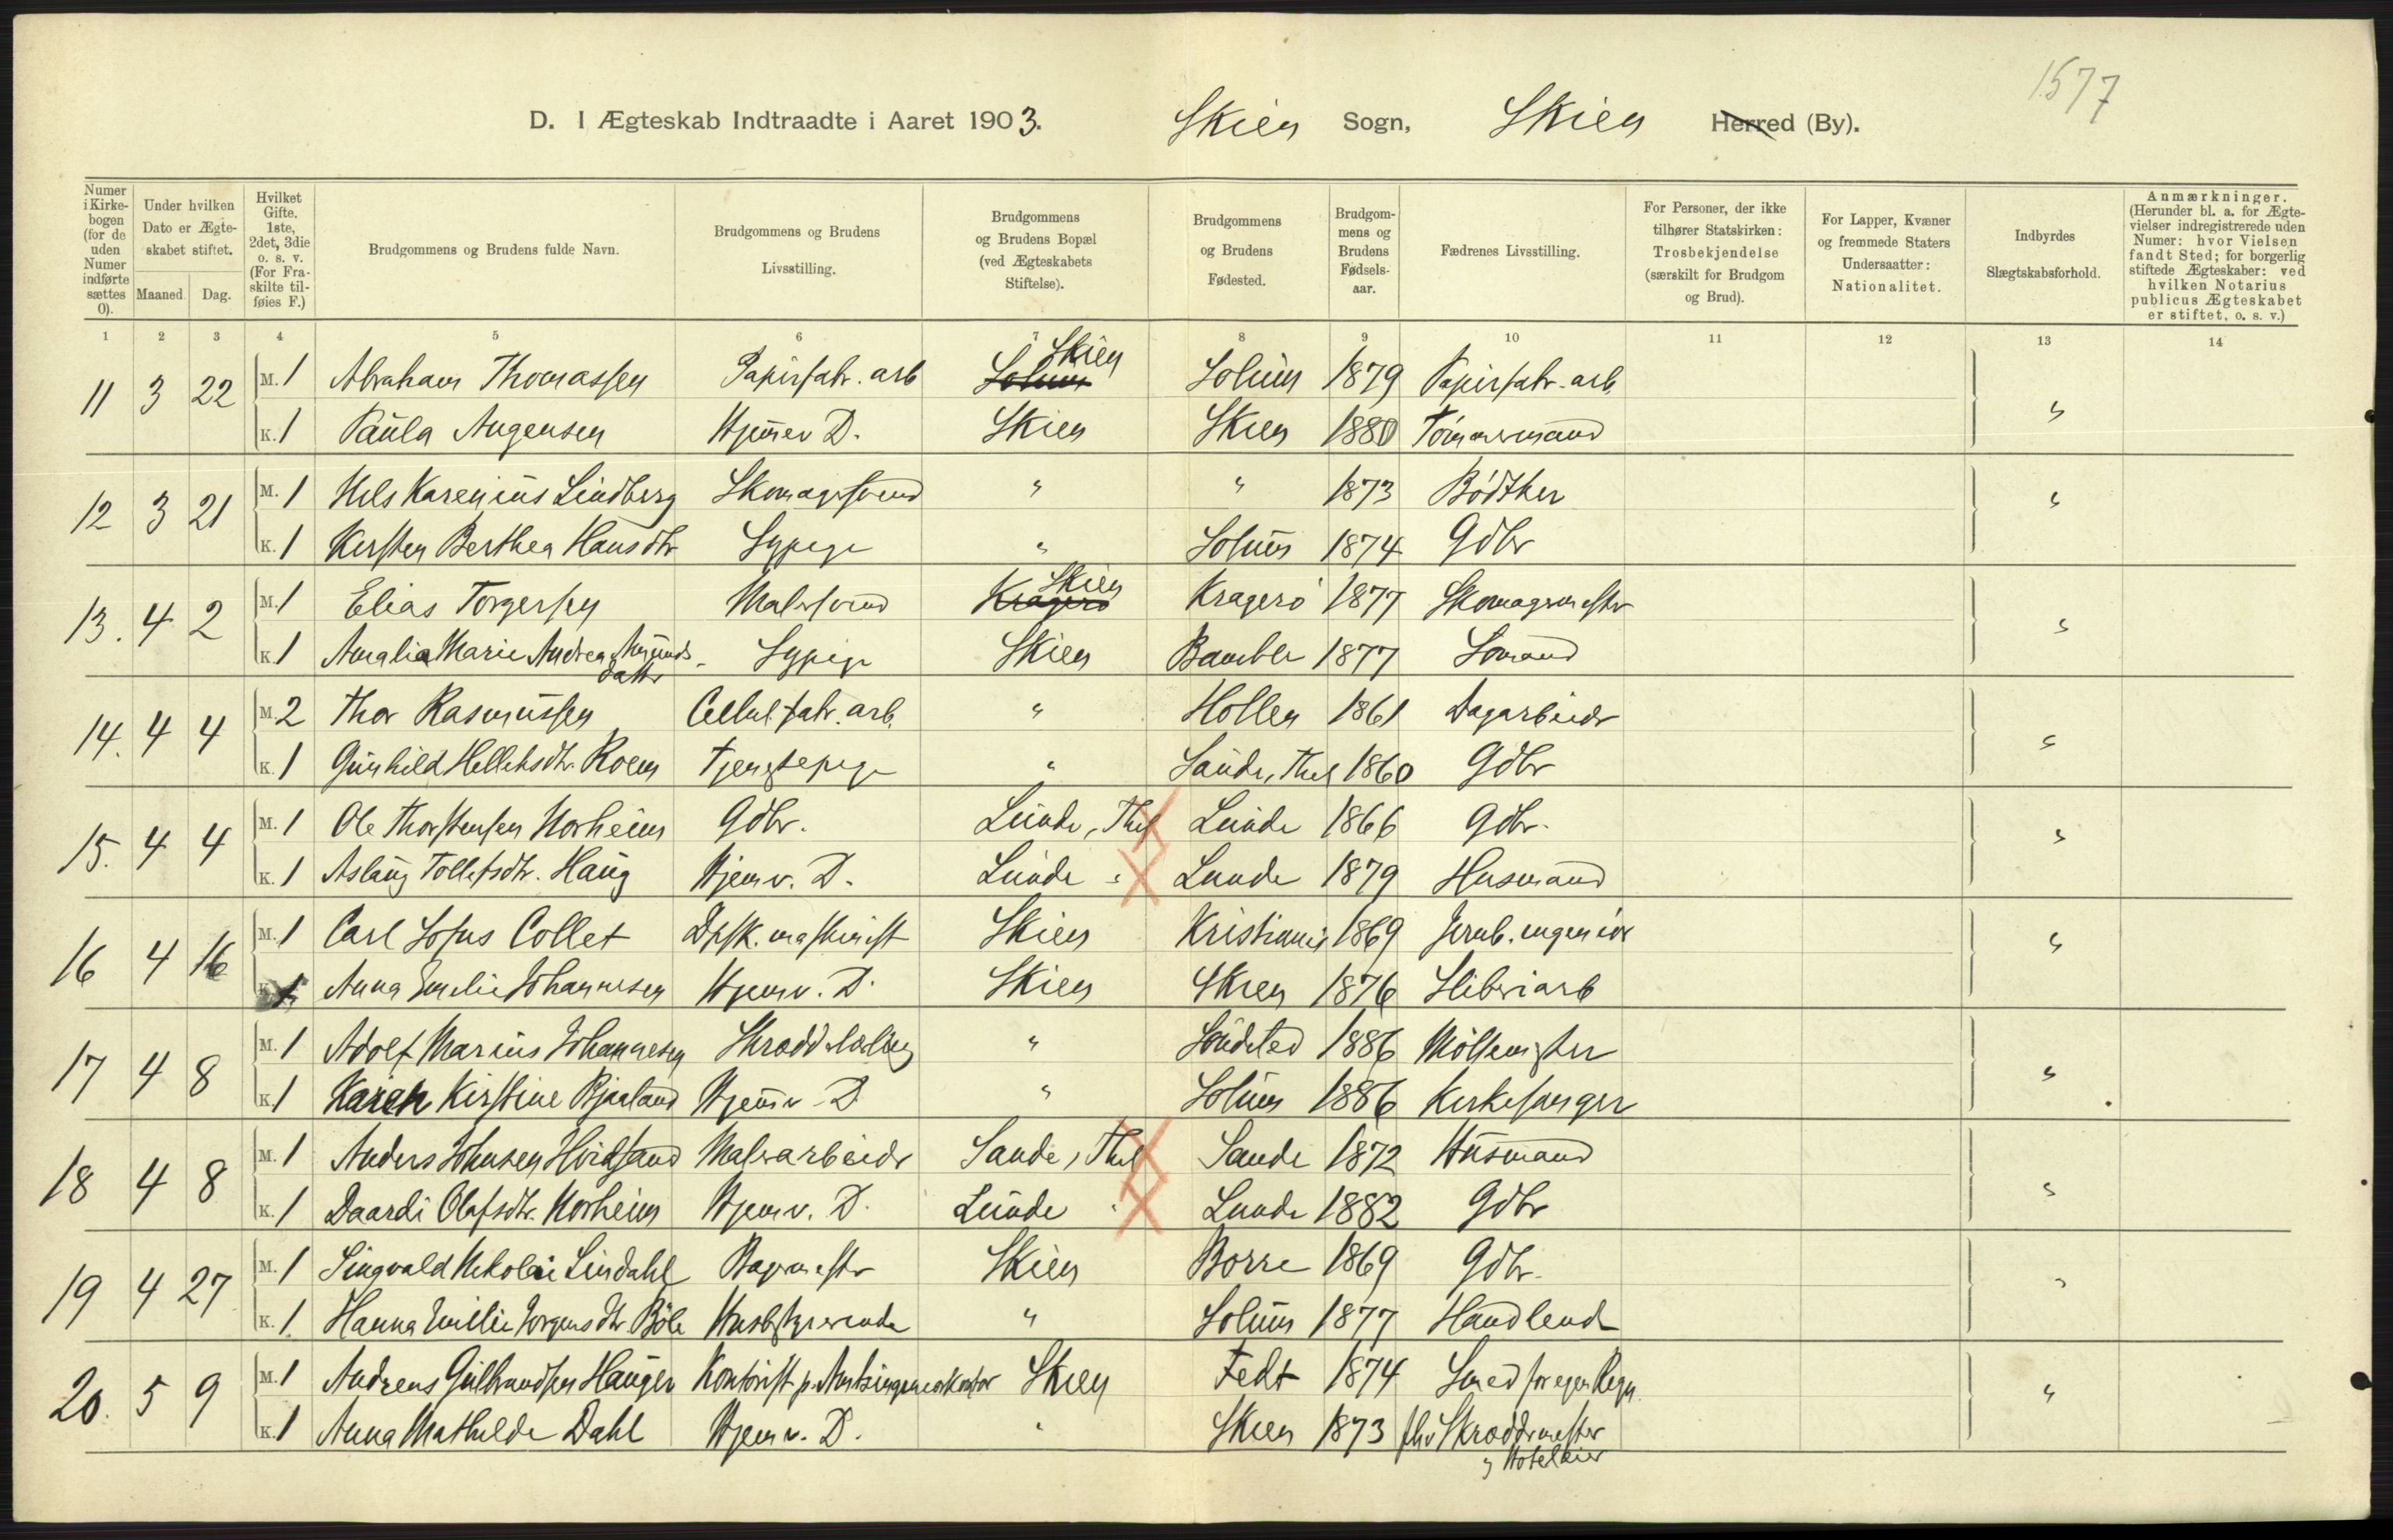 1577
D. I Ægteskab Indtraadte i Aaret 1903. Skien Sogn, Skien Herred (By).
Numer i Kirke-bogen (for de uden Numer indførte sættes 0).
Under hvilken Dato er Ægte-skabet stiftet.
Maaned. Dag.
Hvilket Gifte. 1ste, 2det, 3die o. s. v. (For Fra-skilte til-føies F.)
Brudgommens og Brudens fulde Navn.
Brudgommens og Brudens Livsstilling.
Brudgommens og Brudens Bopæl (ved Ægteskabets Stiftelse).
Brudgommens og Brudens Fødested.
Brudgom-mens og Brudens Fødsels-aar.
Fædrenes Livsstilling.
For Personer, der ikke tilhører Statskirken: Trosbekjendelse (særskilt for Brudgom og Brud).
For Lapper, Kvæner og fremmede Staters Undersaatter: Nationalitet.
Indbyrdes Slægtskabsforhold.
Anmærkninger. (Herunder bl. a. for Ægte-vielser indregistrerede uden Numer: hvor Vielsen fandt Sted; for borgerlig stiftede Ægteskaber: ved hvilken Notarius publicus Ægteskabet er stiftet, o. s. v.)
1 2 3 4 5 6 7 8 9 10 11 12 13 14
11 3 22 M. 1 Abraham Thomassen Papirfabr. arb Solum Skien Solum 1879 Papirfabr. arb.
K. 1 Paula Augensen Hjemev D. Skien Skien 1880 Tømmermand "
12 3 21 M. 1 Nels Karenius Lindberg Skomagersvend " " 1873 Bødtker "
K. 1 Kirsten Berthea Hansdtr Sypige " Solum 1874 Gdbr
13. 4 2 M. 1 Elias Torgersen Malersvend Kragerø Skien Kragerø 1877 Skomagermester
K. 1 Amalia Marie Andrea Amunds-datter Sypige Skien Bamble 1877 Sømand "
14. 4 4 M. 2 Thor Rasmussen Cellul. fabr. arb. " Hollen 1861 Dagarbeider
K. 1 Gunhild Helleksdtr. Roen Tjenestepige " Saude, Thel 1860 Gdbr "
15. 4 4 M. 1 Ole Thorstensen Norheim Gdbr. Lunde, Thel Lunde 1866 Gdbr. "
K. 1 Aslaug Tollefsdtr. Haug Hjemv. D. Lunde " Lunde 1879 Husmand
16 4 16 M. 1 Carl Sofus Collet Dpsk. maskinist Skien Kristiania 1869 Jernb. ingeniør "
K. 1 Anna Emelie Johannesen Hjemv. D. Skien Skien 1876 Sliberiarb
17 4 8 M. 1 Adolf Marius Johannesen Skrædderlærling " Søndeled 1886 Møllemester
K. 1 Karen Kirstine Bjaaland Hjemv D " Solum 1886 Kirkesanger "
18 4 8 M. 1 Anders Johnsen Hvidsand Malerarbeider Saude, Thel Saude 1872 Husmand
K. 1 Daardi Olafsdtr. Norheim Hjemv. D. Lunde " Lunde 1882 Gdbr "
19 4 27 M. 1 Singvald Nikolai Lindahl Bagermester Skien Borre 1869 Gdbr. "
K. 1. Hanna Emilie Jørgensdtr. Bøle Husbestyrerinde " Solum 1877 Handlende
20. 5 9 M. 1 Andreas Gulbrandsen Haugen Kontorist p. Amtsingeniørkontor Skien Fedt 1874 Smed for egen Regn. "
K. 1 Anna Mathilde Dahl Hjemv. D. " Skien 1873 fhv Skræddermester
& Hoteleier